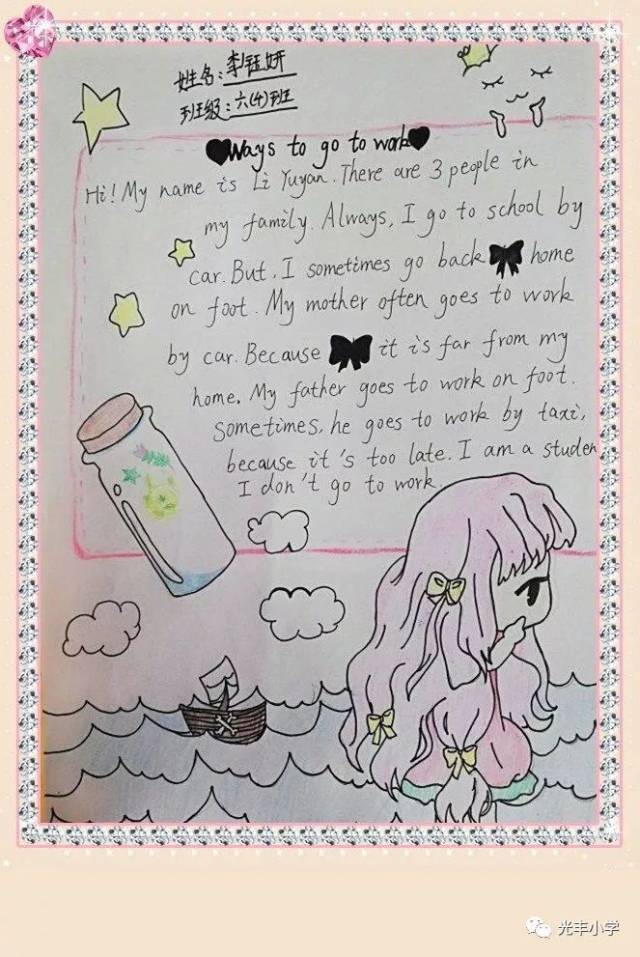 姓名:李钰妍
班级:六(4)班
Ways to go to work
Hi! My name is Li Yuyan. There are 3 people in
my family. Always, I go to school by
car. But, I sometimes go back home
on foot. My mother often goes to work
by car. Because it is far from my
home. My father goes to work on foot.
Sometimes, he goes to work by taxi,
because it's too late. I am a studen
I don't go to work.
光丰小学